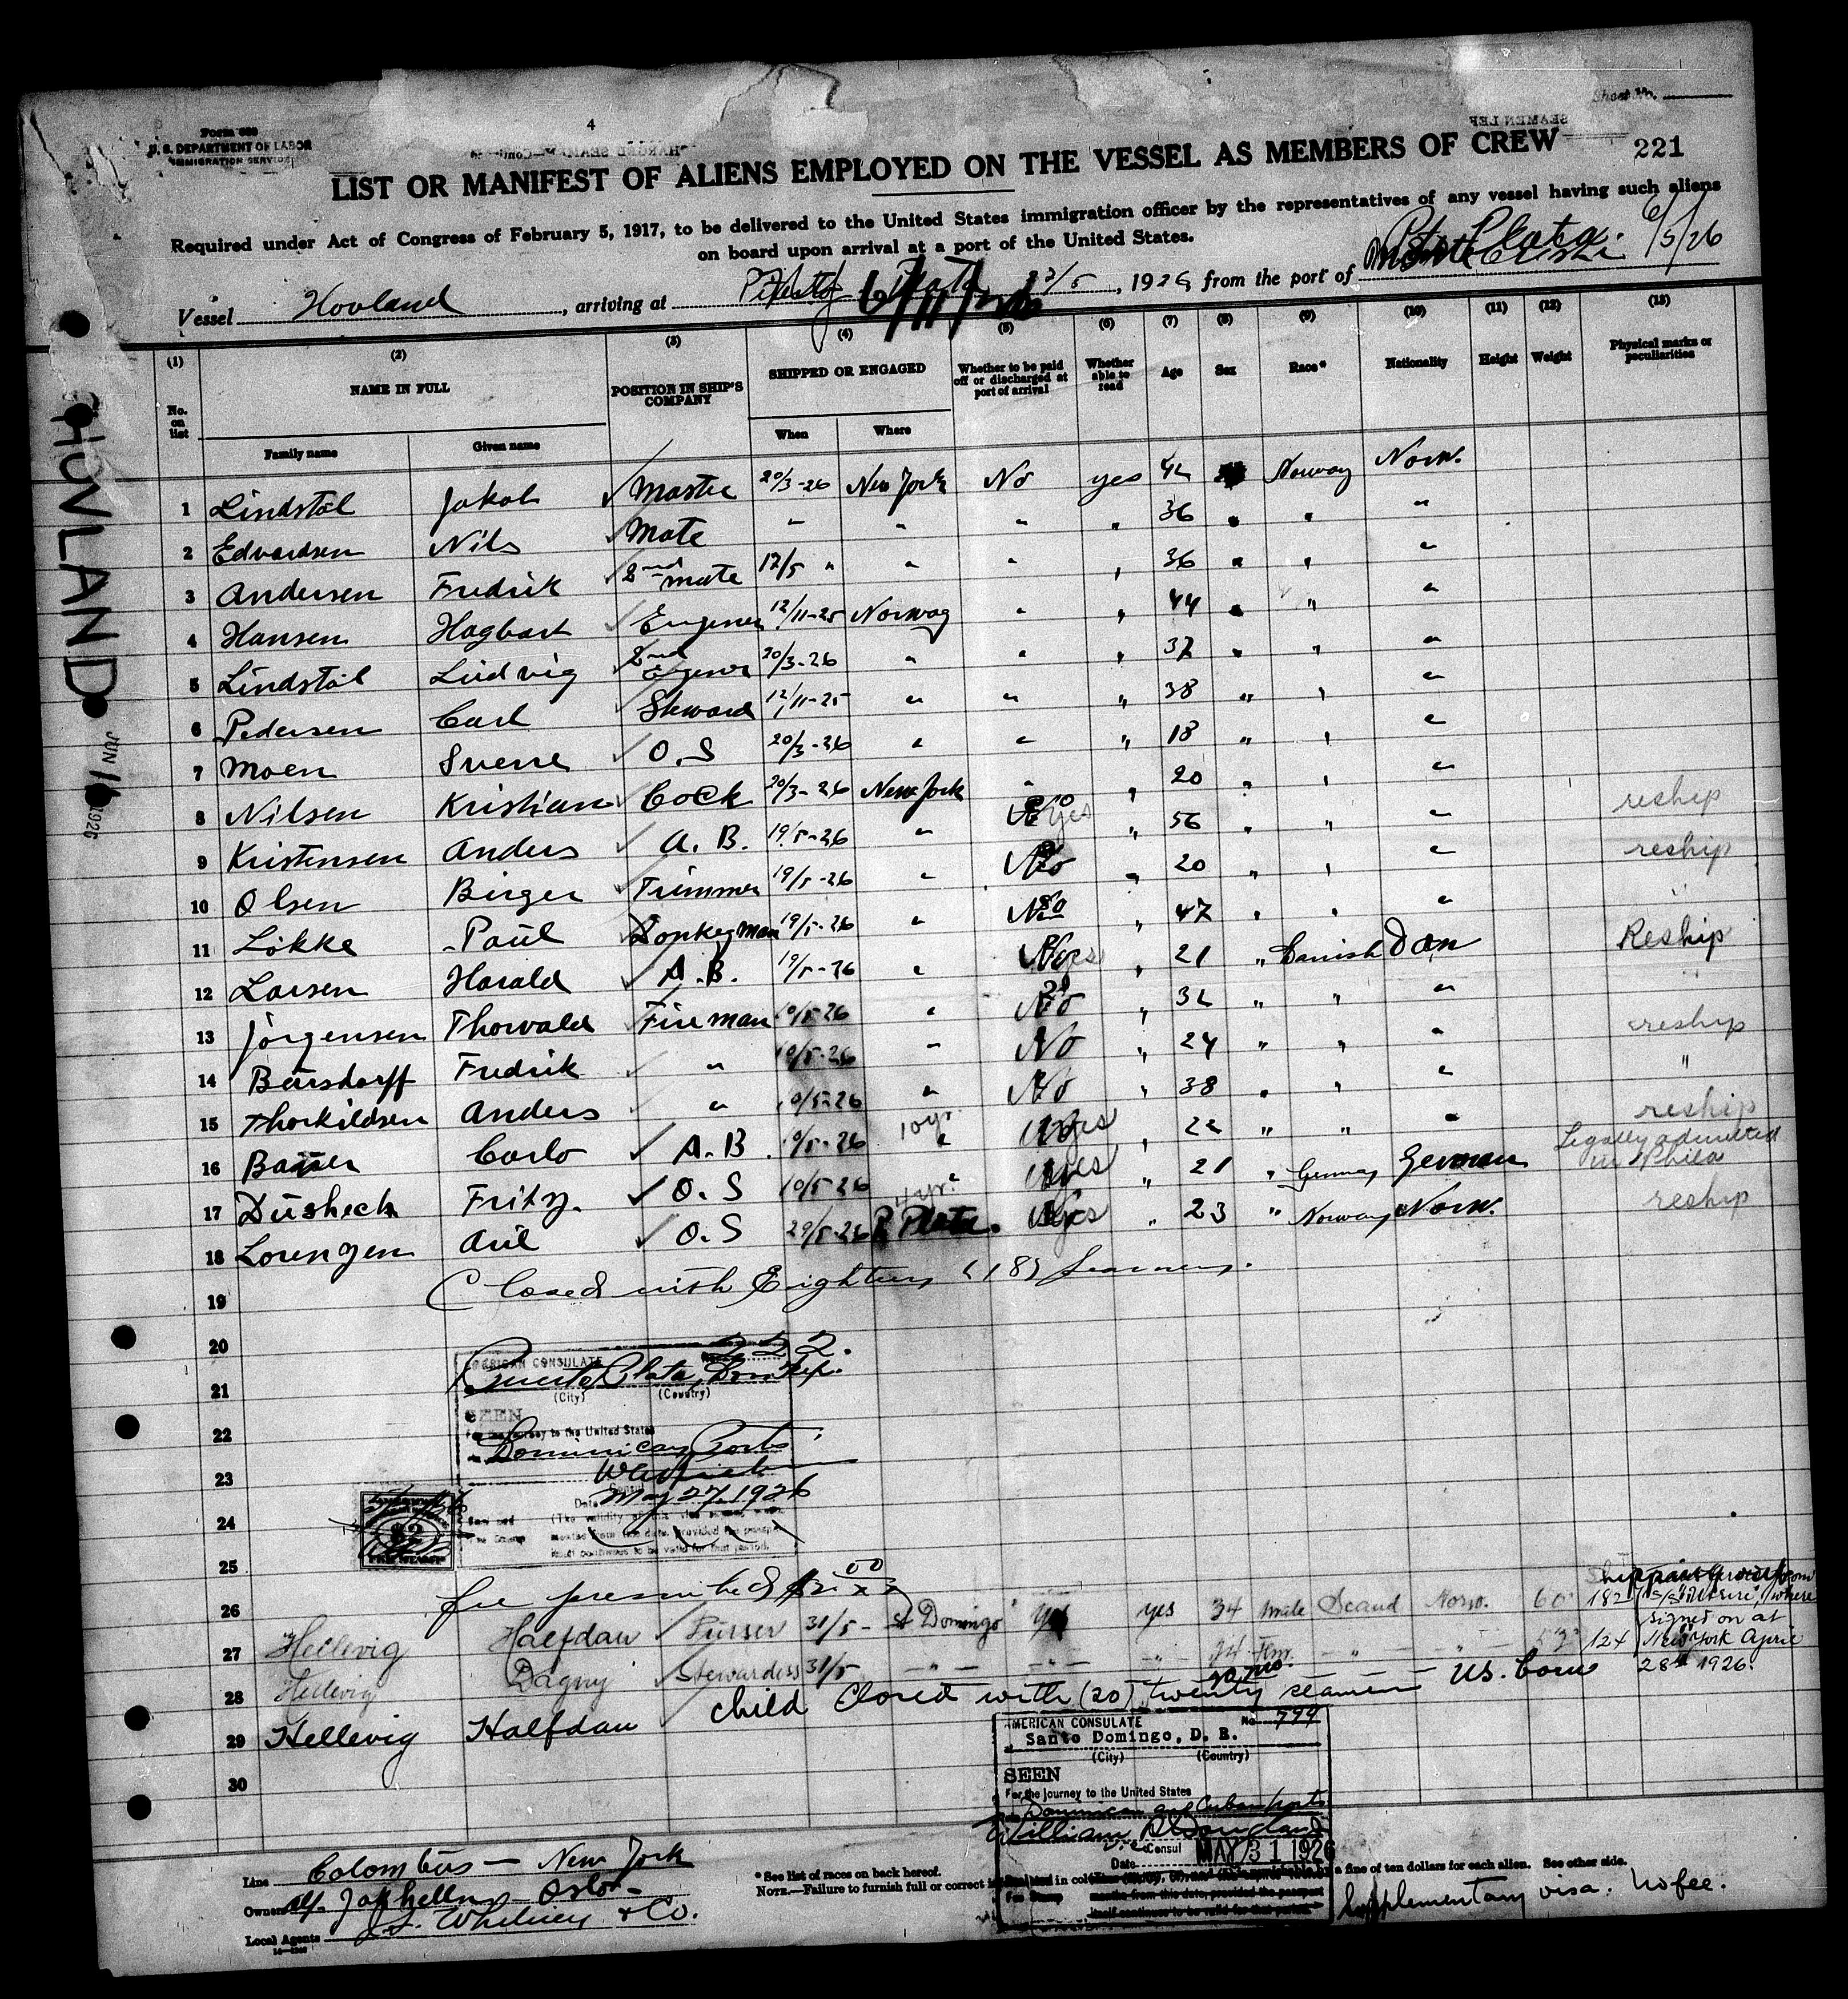 Sheet No.
Form 680
U. S. DEPARTMENT OF LABOR
IMMIGRATION SERVICE
4
SEAMEN LEF
221
LIST OR MANIFEST OF ALIENS EMPLOYED ON THE VESSEL AS MEMBERS OF CREW
Required under Act of Congress of February 5, 1917, to be delivered to the United States immigration officer by the representatives of any vessel having such aliens
on board upon arrival at a port of the United States.
Vessel Hovland, arriving at 22/5, 1926 from the port of 6/5/26
HOVLAND
JUN 1926
(1) (2) (3) (4) (5) (6) (7) (8) (9) (10) (11) (12) (13)
No. on list NAME IN FULL POSITION IN SHIP'S COMPANY SHIPPED OR ENGAGED Whether to be paid off or discharged at port of arrival Whether able to read Age Sex Race* Nationality Height Weight Physical marks or peculiarities
Family name Given name When Where
1 Lindstøl Jakob Master 20/3-26 New York No yes 42 Norway Norw.
2 Edvardsen Nils Mate " " " " 36 " " "
3 Andersen Fredrik 2nd mate 12/5 " " " " 36 " " "
4 Hansen Hagbart Engener 12/11-25 Norway " " 44 " " "
5 Lindstøl Ludvig 2nd 20/3-26 " " " 37 " " "
6 Pedersen Carl Steward 12/11-25 " " " 38 " " "
7 Moen Sverre O.S 20/3-26 " " " 18 " " "
8 Nilsen Kristian Cock 20/3-26 New York " " 20 " " "
9 Kristensen Anders A. B. 19/5-26 " yes " 56 " " " reship
10 Olsen Birger Trimmer 19/5-26 " No " 20 " " " reship
11 Løkke Paul Donkeyman 19/5-26 " No " 47 " " " "
12 Larsen Harald A.B. 19/5-26 " yes " 21 " Danish Dan Reship
13 Jörgensen Thorvald Fireman 19/5-26 " No " 32 " " " "
14 Bursdorff Fredrik " 19/5-26 " No " 24 " " " reship
15 Thorkildsen Anders " 19/5-26 " No " 38 " " " "
16 Carlo A.B. 19/5-26 10 yr. " yes " 22 " " " reship
17 Dusheck Fritz. O.S 19/5-26 yes " 21 " Germany German Legally admitted in Phila
18 Lorenzen O.S 29/5-26 P Plata. yes " 23 " Norway Norw. reship
19 Closed with Eighteen (18) seamen.
20
21
22
23
24
25
26
27
28
29
30
AMERICAN CONSULATE
Puerto Plata, Dom Rep.
(City) (Country)
SEEN
For the journey to the United States
Dominican Ports
Consul
Date May 27, 1926
$2
FEE STAMP
fee prescribed $2.00
Hellevig Halfdan Purser 31/5- St Domingo yes yes 34 male Scand Norw. 182
Hellevig Dagny Stewardess 31/5 " " " 24 Fem. " " 124
signed on at
New York April
28th 1926.
Hellevig Halfdan child Closed with (20) twenty seamen US. born
AMERICAN CONSULATE No. 799
Santo Domingo, D. R.
(City) (Country)
SEEN
For the journey to the United States
Dominican and Cuban ports
Vice Consul
Date MAY 31 1926
Supplementary visa. No fee.
Line Colombus - New York
Owners Oslo-
Local Agents J. Whitney & Co.
* See list of races on back hereof.
NOTE.—Failure to furnish full or correct
a fine of ten dollars for each alien. See other side.